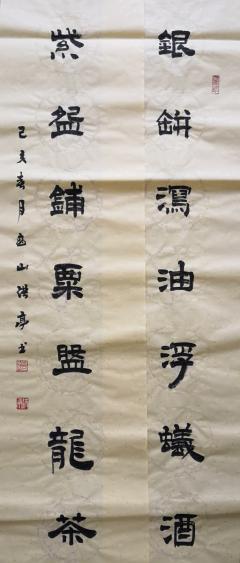 銀缾瀉油浮蟻酒
紫盌鋪粟盤龍茶
己亥春月
山洪亭书